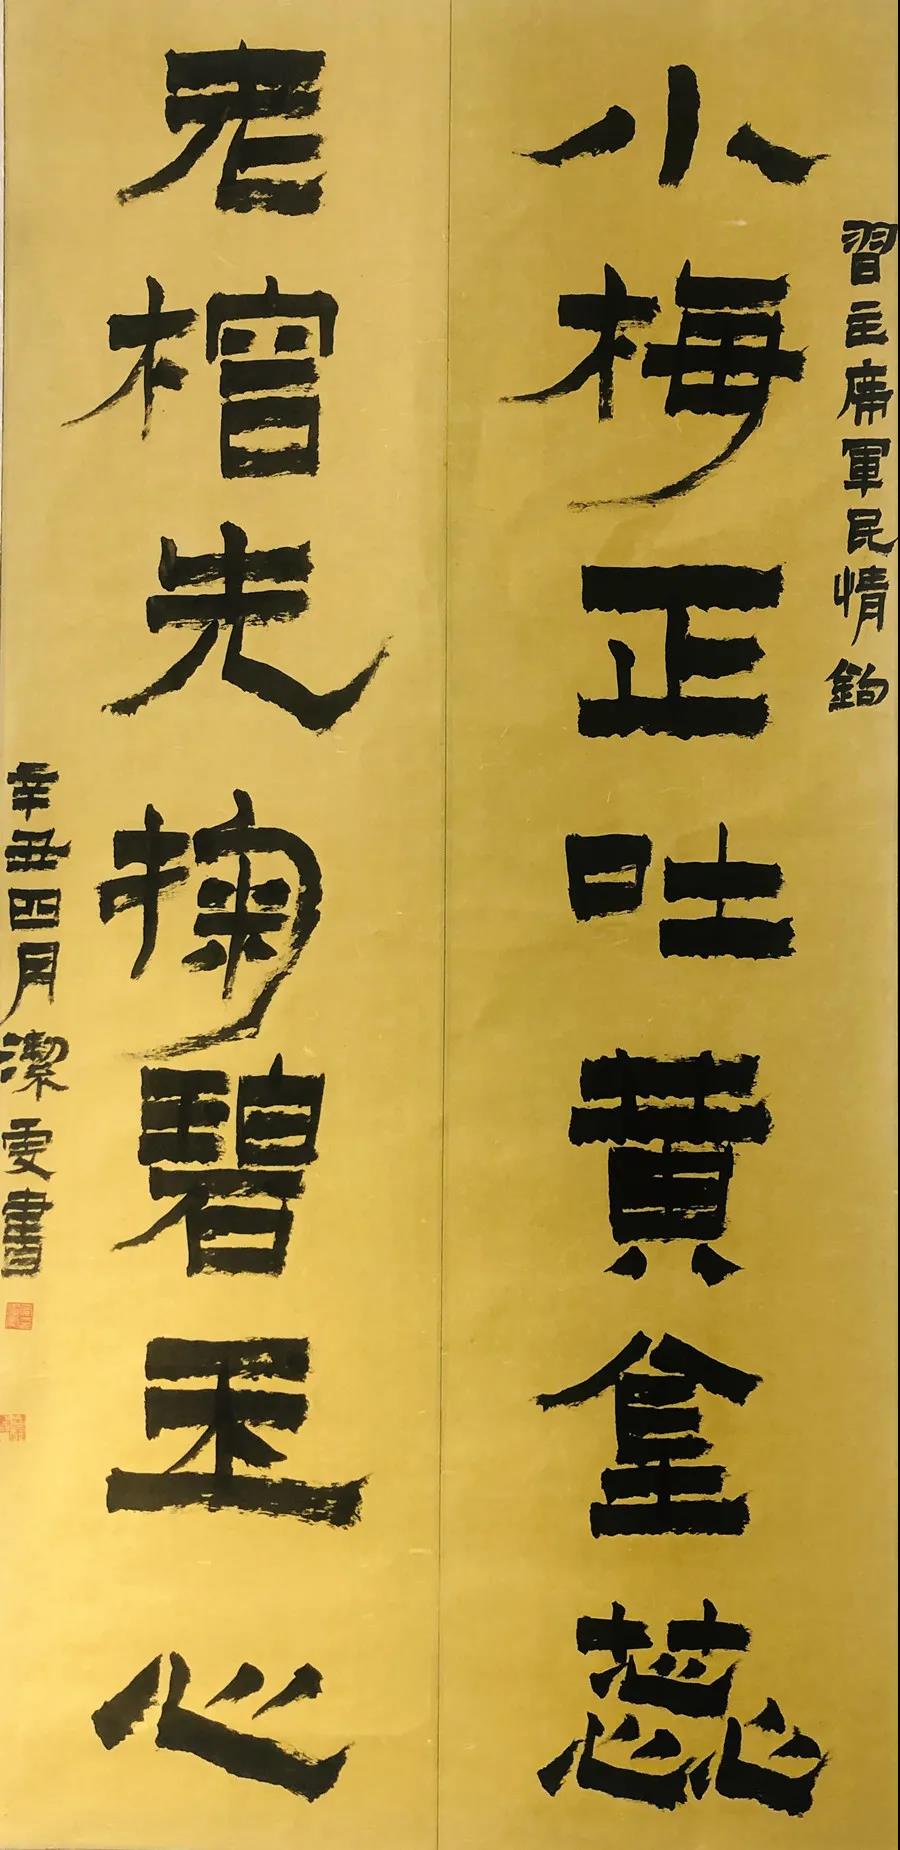 習主席軍民情鉤
小梅正吐黄金蕊
老榕先掬碧玉心
辛丑四月潔雯書